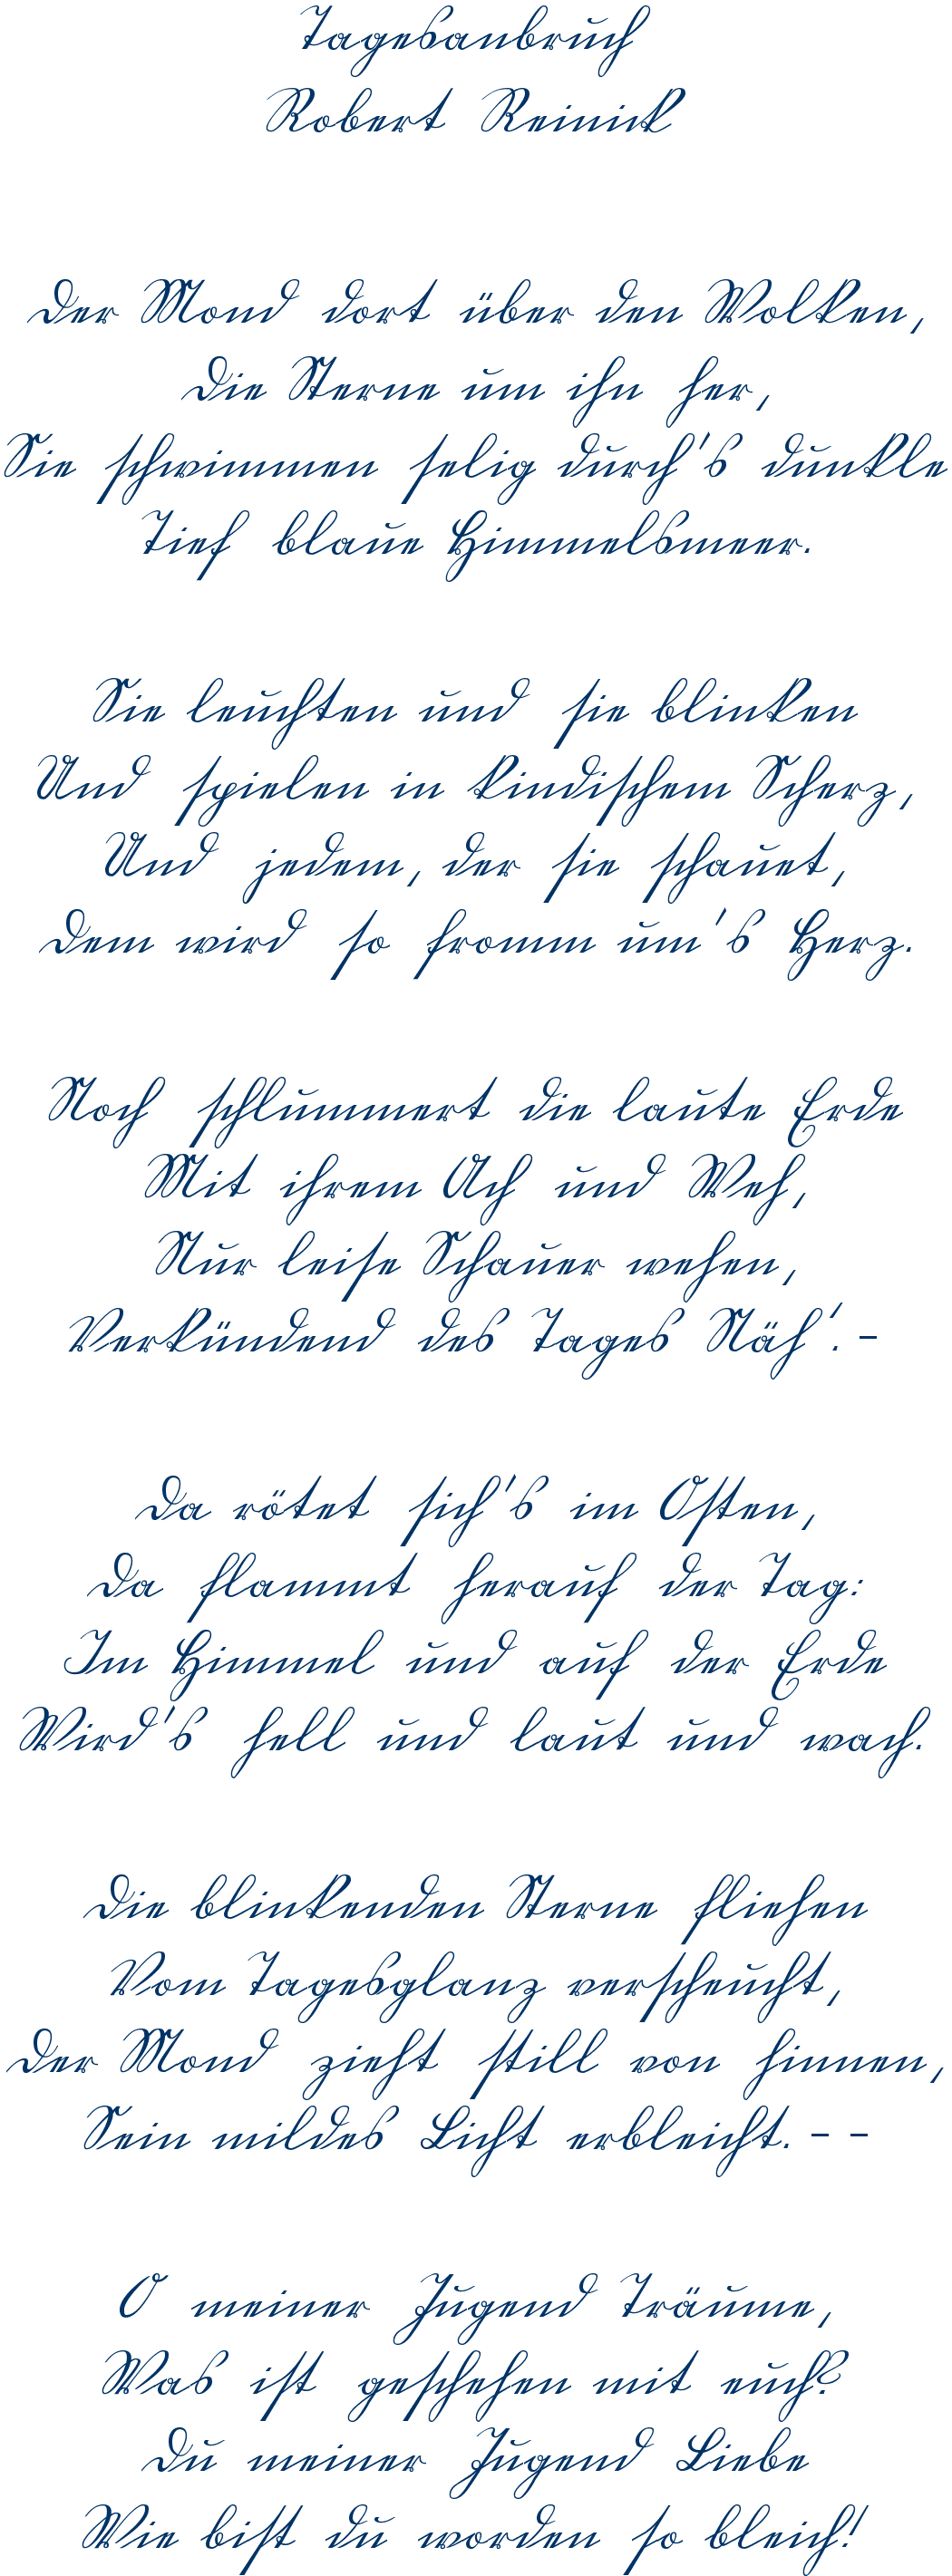 Tagesanbruch
Robert Reinick
Der Mond dort über den Wolken,
Die Sterne um ihn her,
Sie schwimmen selig durch's dunkle
Tief blaue Himmelsmeer.
Sie leuchten und sie blinken
Und spielen in kindischem Scherz,
Und jedem, der sie schauet,
Dem wird so fromm um's Herz.
Noch schlummert die laute Erde
Mit ihrem Ach und Weh,
Nur leise Schauer wehen,
Verkündend des Tages Näh'. -
Da rötet sich's im Osten,
Da flammt herauf der Tag:
Im Himmel und auf der Erde
Wird's hell und laut und wach.
Die blinkenden Sterne fliehen
Vom Tagesglanz verscheucht,
Der Mond zieht still von hinnen,
Sein mildes Licht erbleicht. - -
O meiner Jugend Träume,
Was ist geschehen mit euch?
Du meiner Jugend Liebe
Wie bist du worden so bleich!